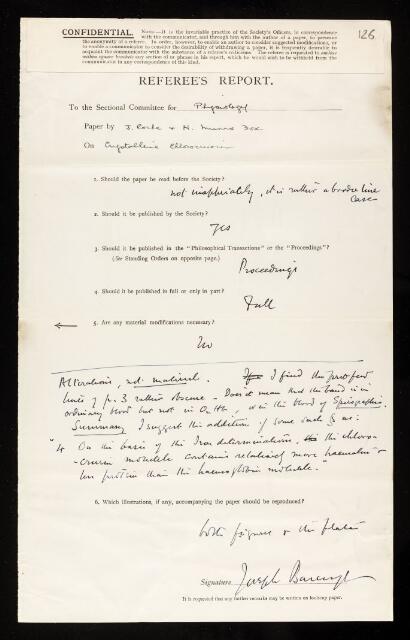 CONFIDENTIAL. NOTE.—It is the invariable practice of the Society's Officers, in correspondence
with the communicator, and through him with the author of a paper, to preserve
the anonymity of a referee. In order, however, to enable an author to consider suggested modifications, or
to enable a communicator to consider the desirability of withdrawing a paper, it is frequently desirable to
acquaint the communicator with the substance of a referee's criticisms. The referee is requested to enclose
within square brackets any section of or phrases in his report, which he would wish to be withheld from the
communicator in any correspondence of this kind.
126
REFEREE'S REPORT.
To the Sectional Committee for Physiology
Paper by J. Roche & H. Munro Fox
On Crystalline Chlorocruorin
1. Should the paper be read before the Society?
not inappropriately, it is rather a border line
case
2. Should it be published by the Society?
Yes
3. Should it be published in the "Philosophical Transactions" or the "Proceedings"?
(See Standing Orders on opposite page.)
Proceedings
4. Should it be published in full or only in part?
Full
5. Are any material modifications necessary?
No
Alterations, not material. I find the first few
lines of p. 3 rather obscure - Does it mean that the band is in
ordinary blood but not in , is in the blood of Spirographis.
Summary I suggest the addition of some such § as:
"4 On the basis of the Iron determinations, the chloro-
-cruorin molecule contains relatively more haematin &
less protein than the haemoglobin molecule."
6. Which illustrations, if any, accompanying the paper should be reproduced?
both figures & the plate
Signature Joseph Barcroft
It is requested that any further remarks may be written on looseny paper.